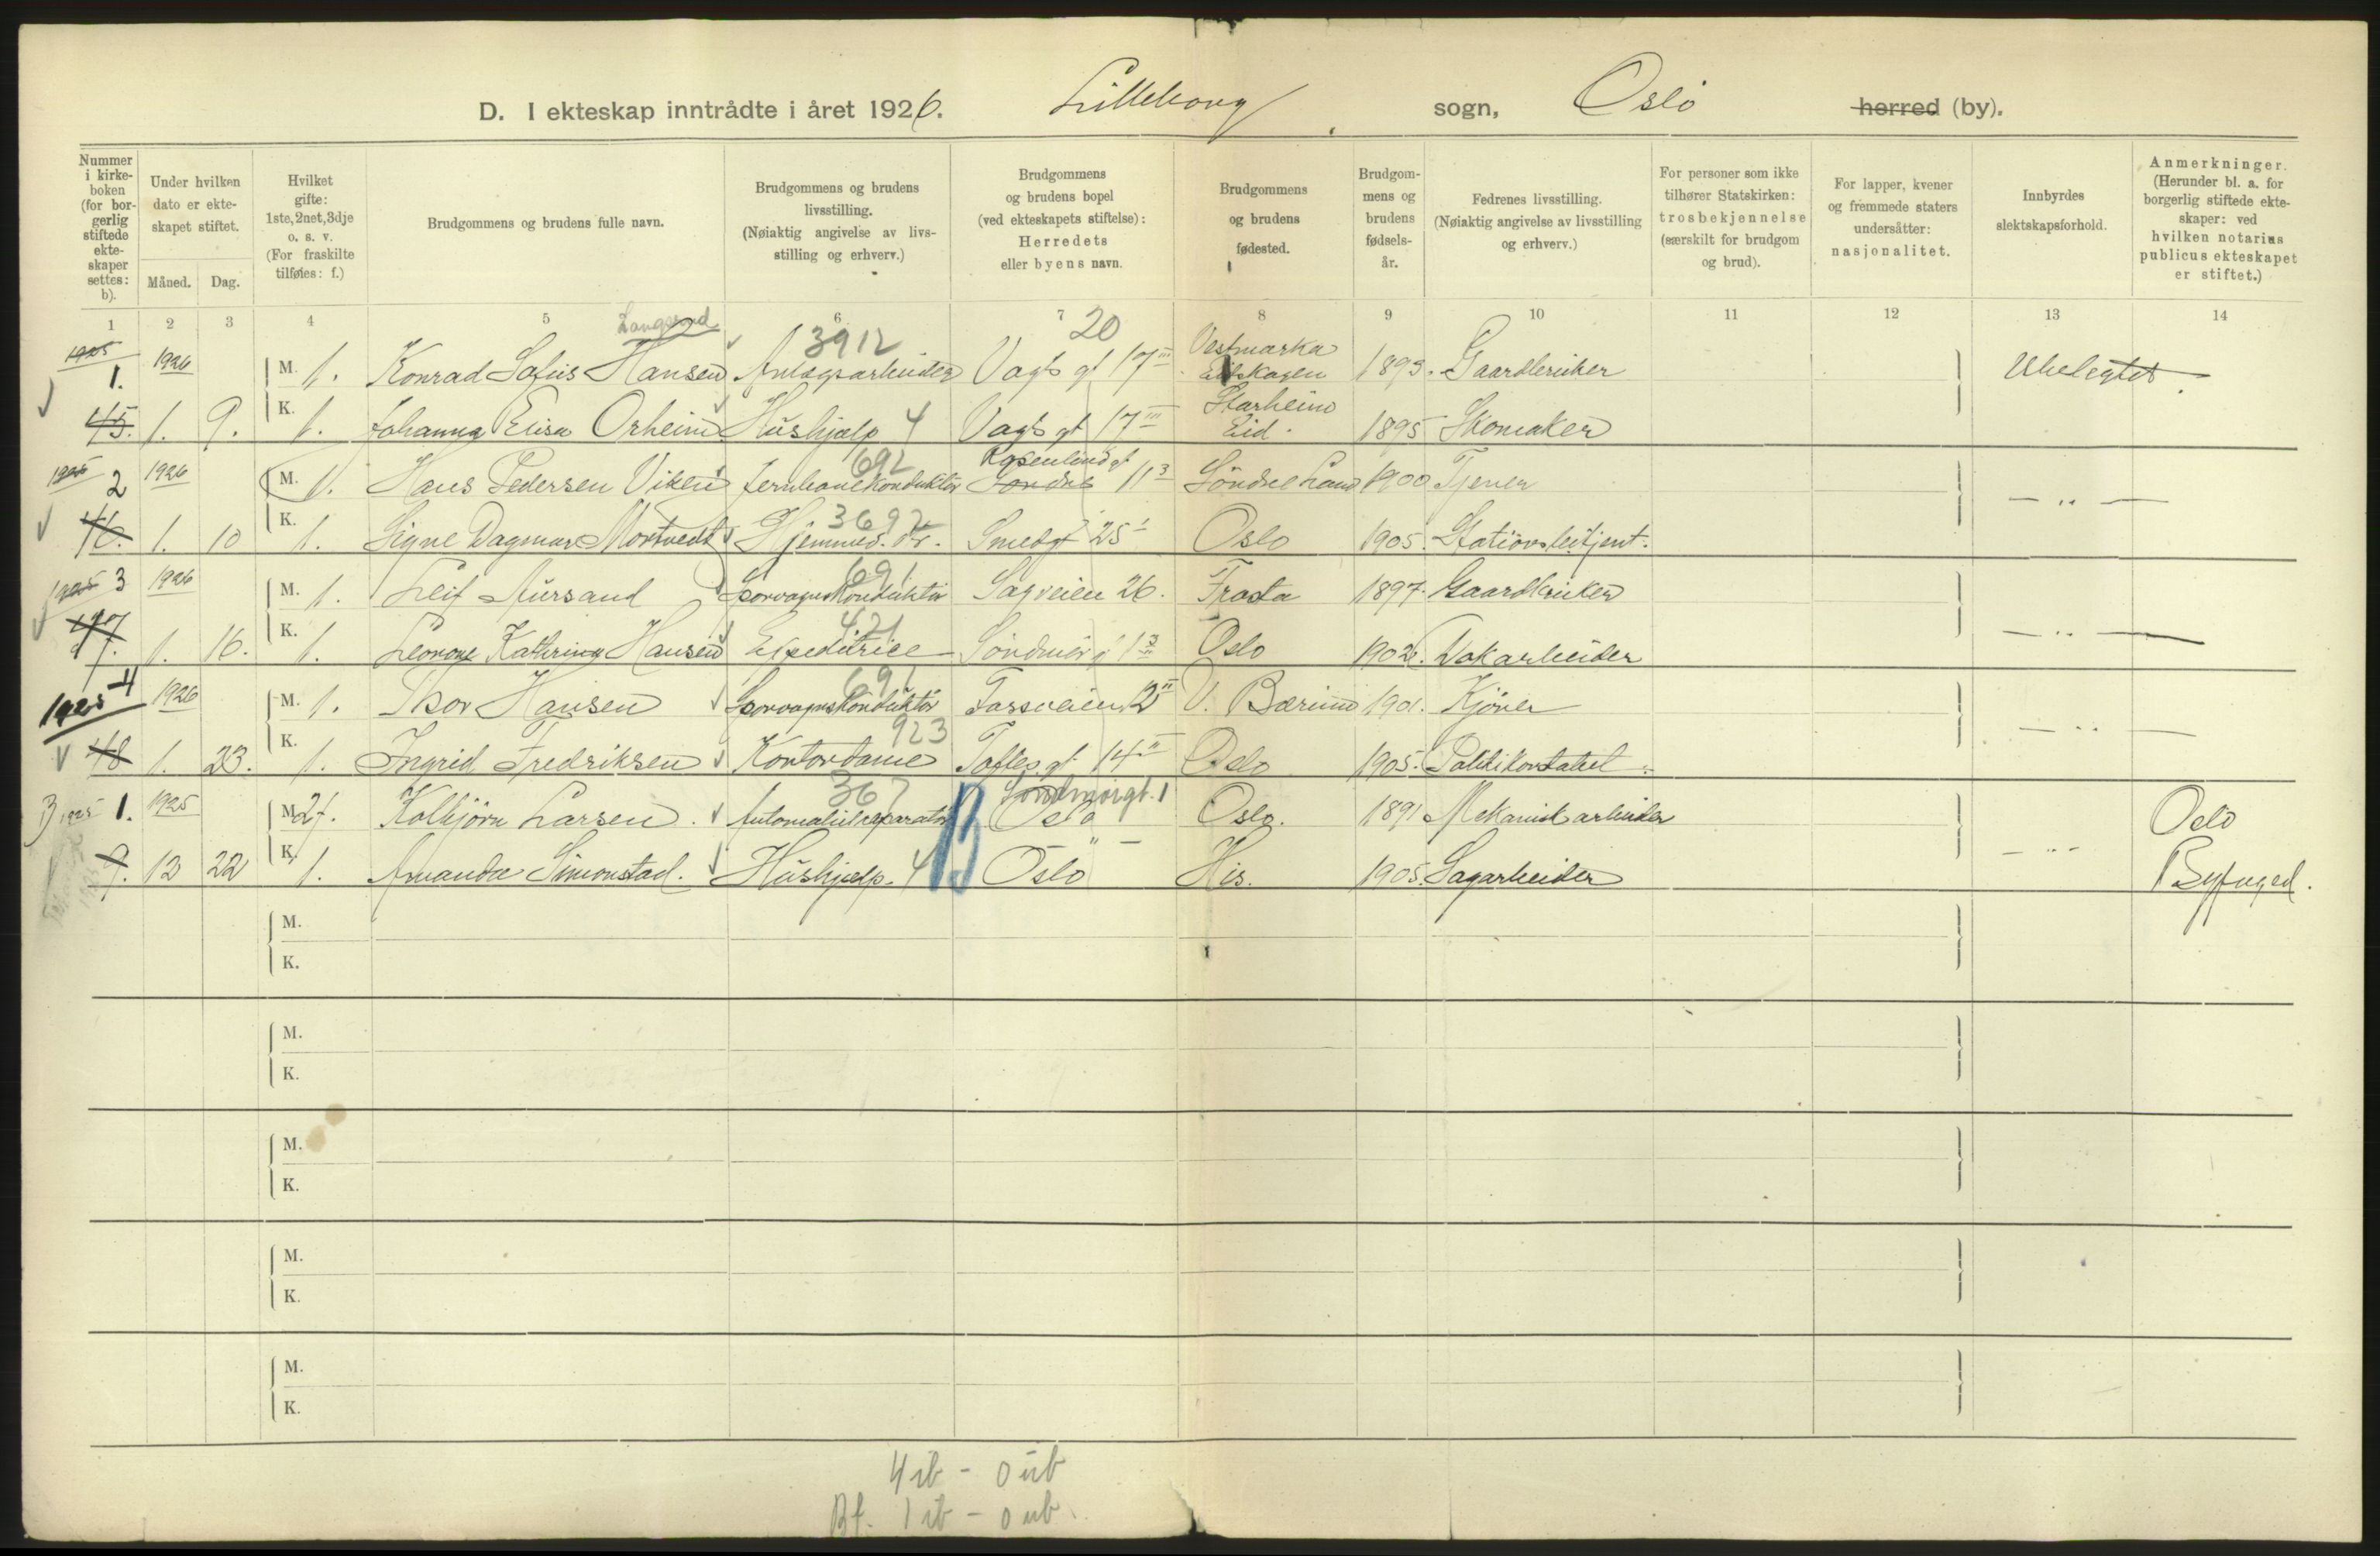 D. I ekteskap inntrådte i året 1926. Lilleborg sogn, Oslo herred (by).
Nummer i kirkeboken (for borgerlig stiftede ekteskaper settes: b).
Under hvilken dato er ekteskapet stiftet.
Måned. Dag.
Hvilket gifte: 1ste, 2net, 3dje o. s. v. (For fraskilte tilføies: f.)
Brudgommens og brudens fulle navn.
Brudgommens og brudens livsstilling. (Nøiaktig angivelse av livsstilling og erhverv.)
Brudgommens og brudens bopel (ved ekteskapets stiftelse): Herredets eller byens navn.
Brudgommens og brudens fødested.
Brudgommens og brudens fødselsår.
Fedrenes livsstilling. (Nøiaktig angivelse av livsstilling og erhverv.)
For personer som ikke tilhører Statskirken: trosbekjennelse (særskilt for brudgom og brud).
For lapper, kvener og fremmede staters undersåtter: nasjonalitet.
Innbyrdes slektskapsforhold.
Anmerkninger. (Herunder bl. a. for borgerlig stiftede ekteskaper: ved hvilken notarius publicus ekteskapet er stiftet.)
1 2 3 4 5 6 7 8 9 10 11 12 13 14
Langerud 3912 20
1925 1. 1926 M. 1. Konrad Sofus Hansen Anlægsarbeider Vogts gt 17 III Vestmarka Eidskogen 1893. Gaardbruker Ubeslegtet.
45. 1. 9. K. 1. Johanna Elisa Orheim Hushjælp 4 Vogts gt 17 III Starheim Eid. 1895 Skomaker
692 Rosenlundgt
1925 2 1926 M. 1. Hans Pedersen Viken Jernbanekonduktør Søndre 11 3 Søndre Land 1900 Tjener — „ —
3692
46. 1. 10 K. 1. Signe Dagmar Mortvedt Hjemmev. dr. Smedgt 25 I Oslo 1905. Stationsbetjent.
691
1925 3 1926 M. 1. Leif Aursand Sporvognskonduktør Sagveien 26. Frosta 1897. Gaardbruker — „ —
421
47. 1. 16. K. 1. Leonore Kathrine Hansen Expeditrice Oslo 1902. Dokarbeider
691
1925 4 1926 M. 1. Thor Hansen Sporvognskonduktør Fossveien 12 II V. Bærum 1901. Kjører — „ —
923
48 1. 23. K. 1. Ingrid Fredriksen Kontordame Toftes gt. 14 II Oslo 1905. Politikonstabel.
367 Søndmørgt. 1
B 1925 1. 1925 M. 2f. Kolbjørn Larsen. Automobilreparatør B Oslo Oslo. 1891 Mekanisk arbeider Oslo
9. 12 22 K. 1. Amanda Simonstad. Hushjælp. 4 Oslo — „ — His. 1905. Sagarbeider — „ — Byfoged.
M.
K.
M.
K.
M.
K.
M.
K.
M.
K.
4 ib - 0 ub
Bf. 1 ib - 0 ub.